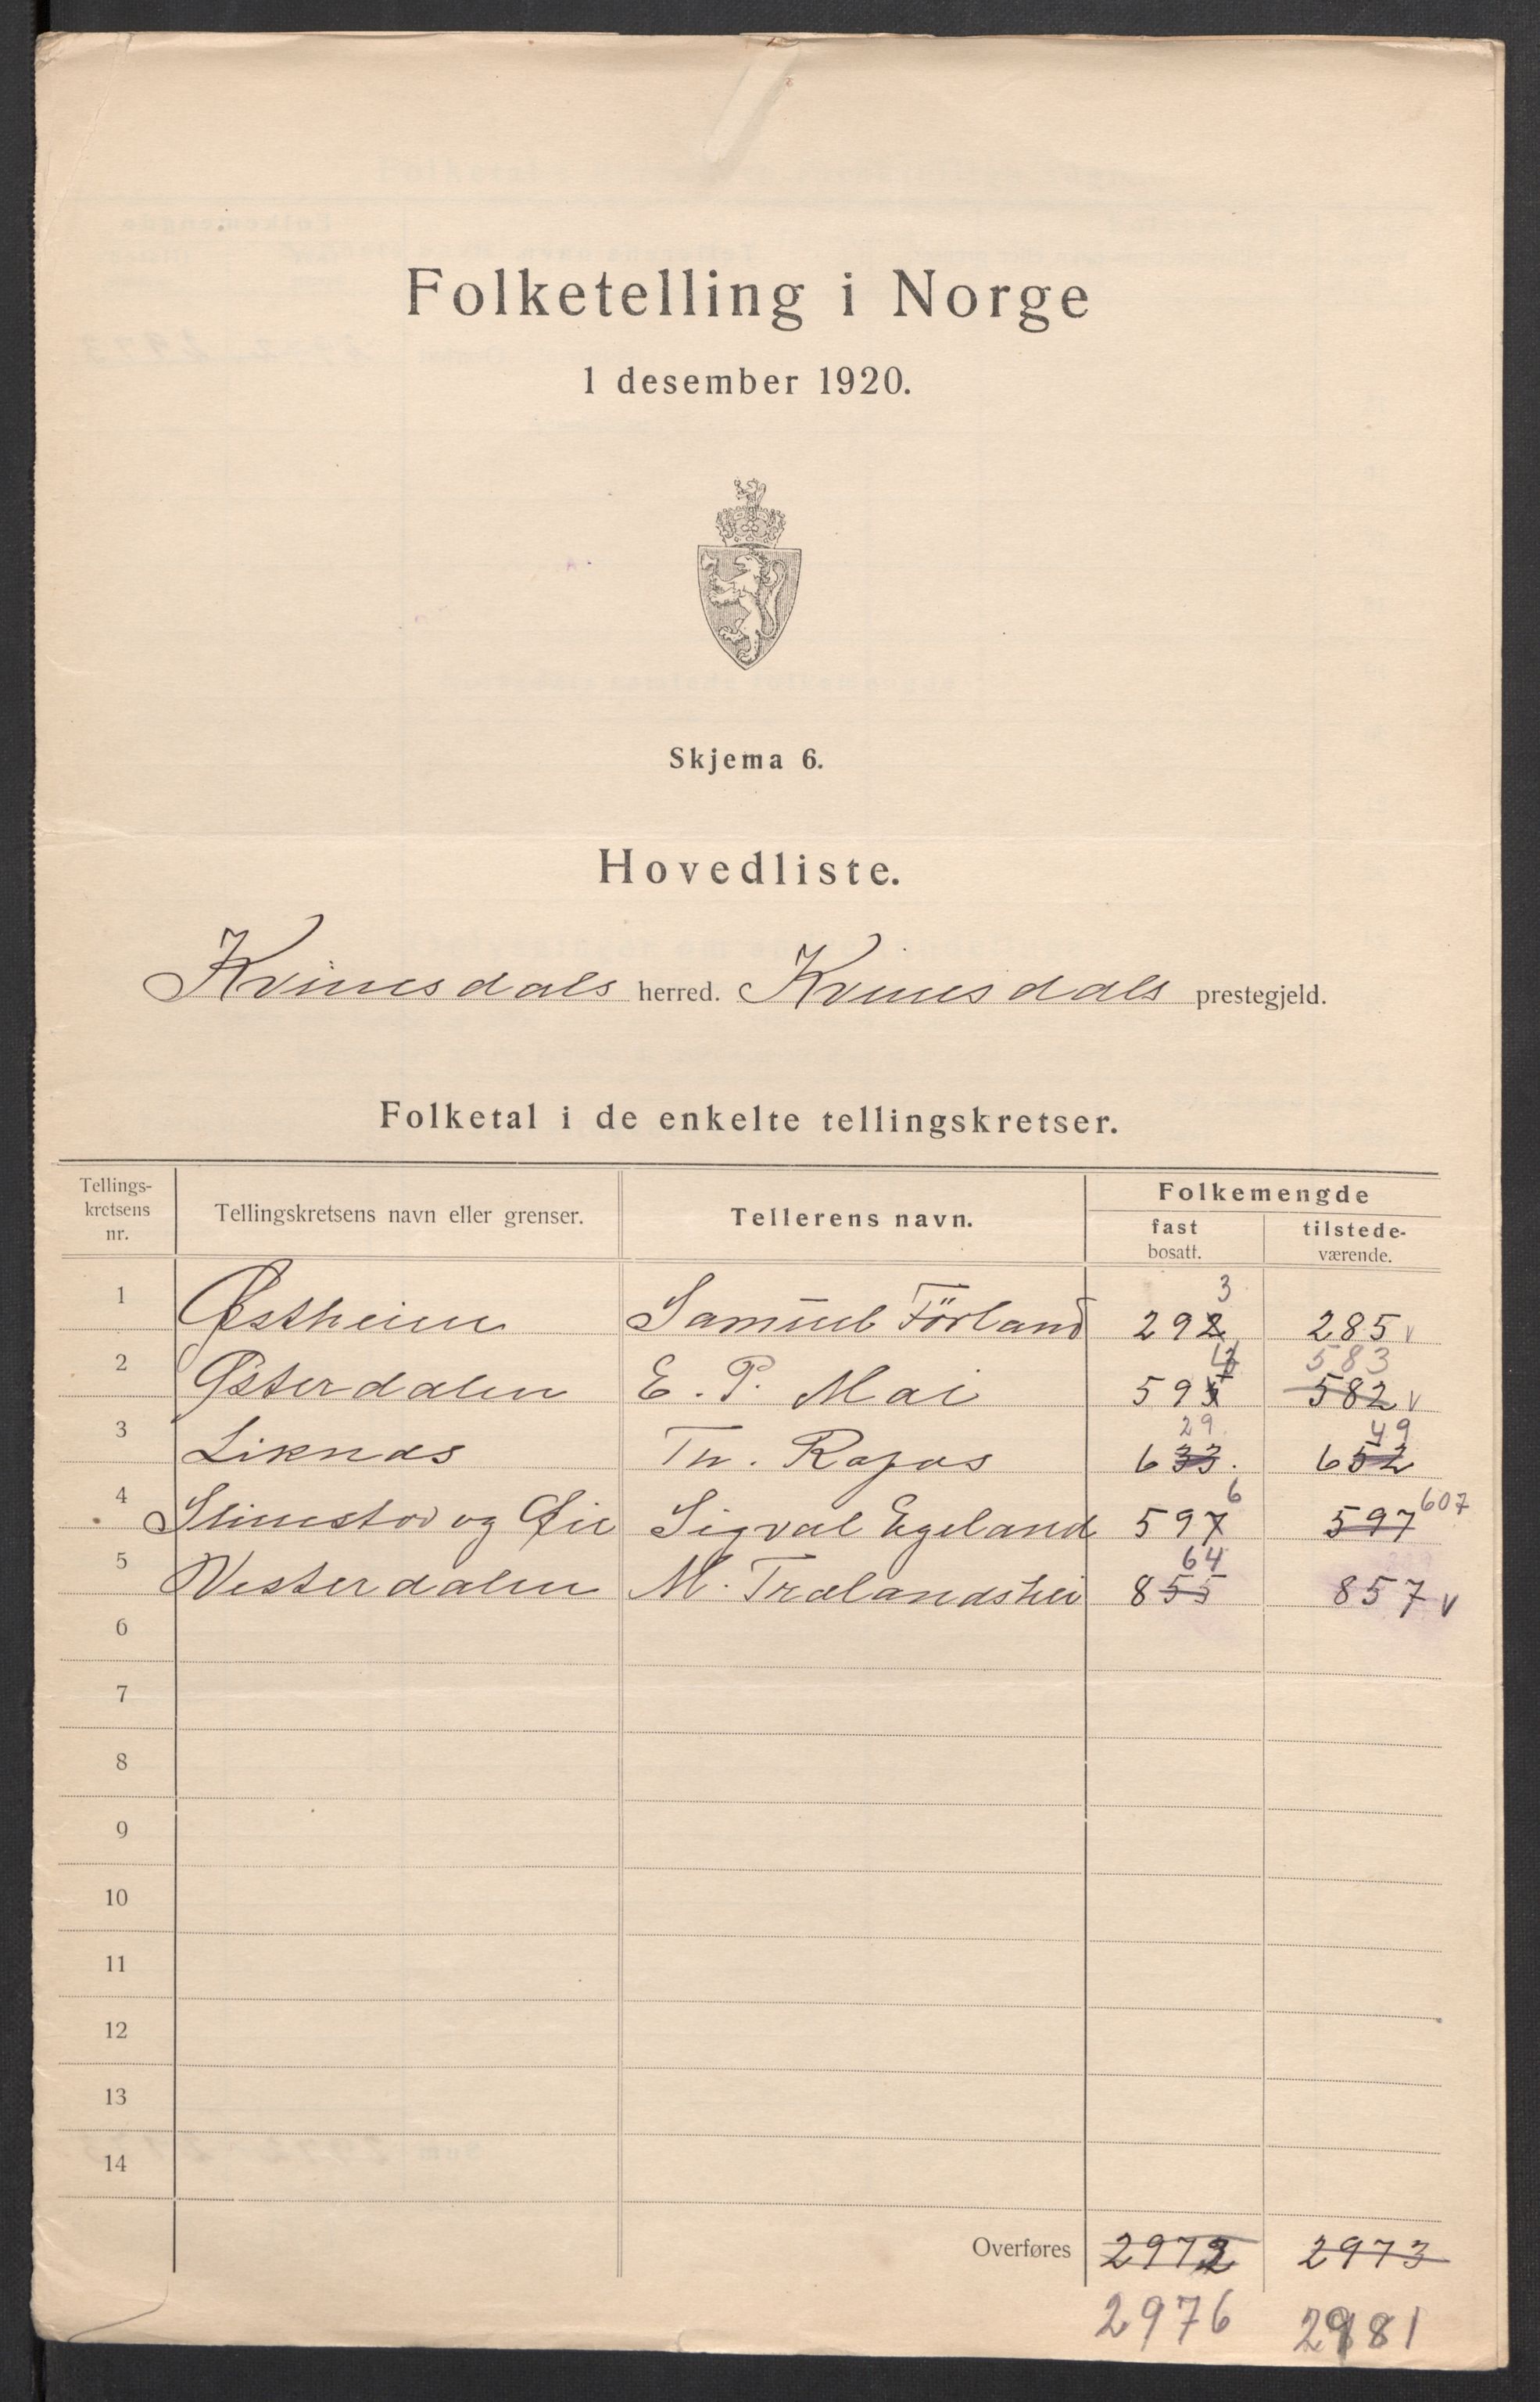 Folketelling i Norge
1 desember 1920.
Skjema 6.
Hovedliste.
Kvinesdals herred. Kvinesdals prestegjeld.
Folketal i de enkelte tellingskretser.
Tellings-
kretsens
nr.
Tellingskretsens navn eller grenser.
Tellerens navn.
Folkemengde
fast
bosatt.
tilstede-
værende.
3
1 Østheim Samuel Förland 292 285 v
583
2 Østerdalen E. P. Mai 595 582 v
29 49
3 Liknes Th. Rafos 633. 652
6 607
4 og Øie Sigval Egeland 597 597
64
5 Vesterdalen M. Trælandshei 855 857 v
6
7
8
9
10
11
12
13
14
Overføres 2972 2973
2976 2981